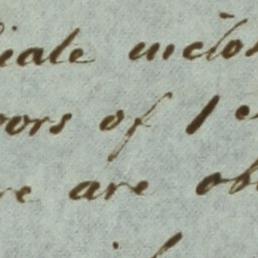 iate inclos
vors of 1st
re are ob